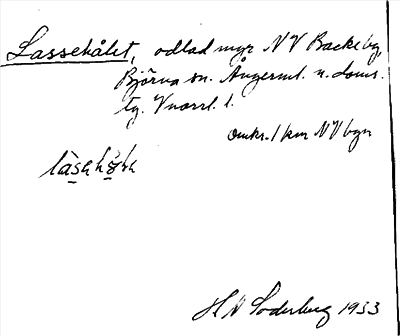 Lassehålet, odlad myr NV Backe by,
Björna sn. Ångerml. n. doms.
tg. Vnorrl. l.
omkr. 1 km NV byn
H A Söderberg 1933